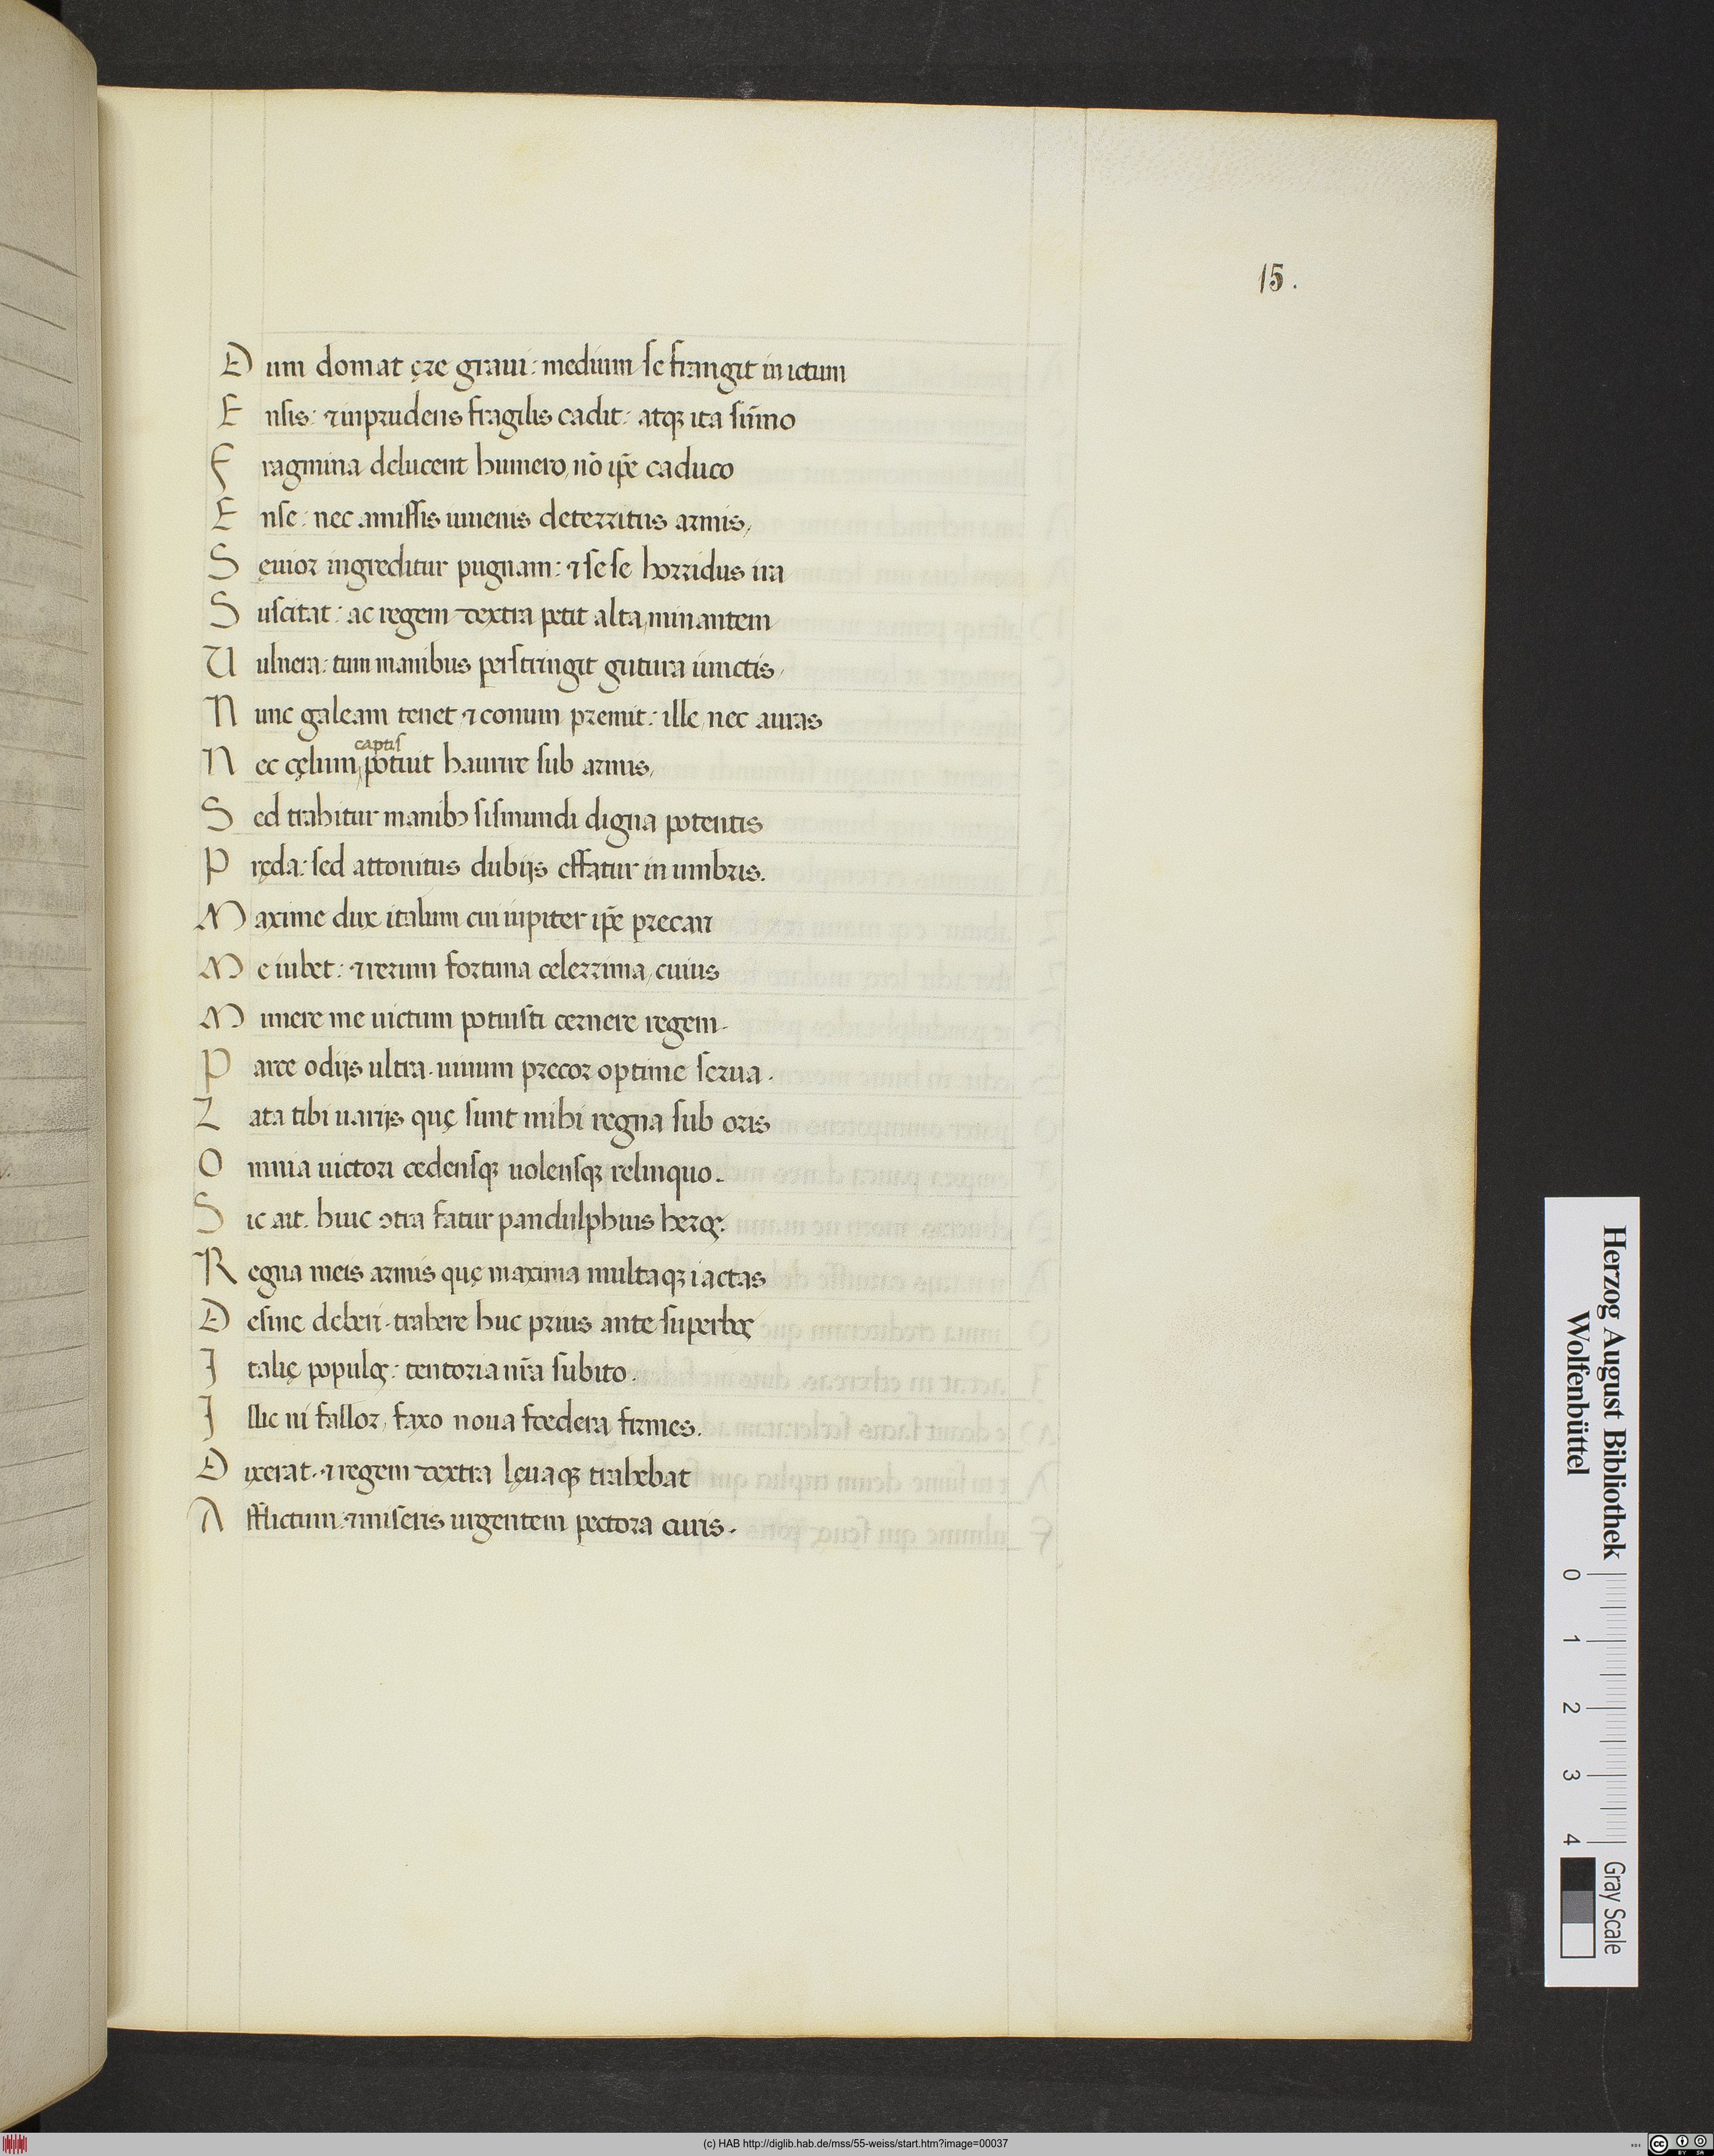 15.
Dum domat ęre graui: medium se frangit in ictum
Ensis: ⁊ inprudens fragilis cadit: atqꝫ ita sum̄o
Fragmina delucent humero, nō ip̄e caduco
Ense: nec amissis iuuenis deterritus armis,
Sęuior ingreditur pugnam: ⁊ sese horridus ira
Suscitat: ac regem dextra petit alta, minantem
Uulnera: tum manibus perstringit gutura iunctis,
Nunc galeam tenet ⁊ conum premit: ille, nec auras
captis
Nec cęlum, potuit haurire sub armis,
Sed trahitur manibꝰ sismundi digna potentis
Pręda: sed attonitus dubijs effatur in umbris.
Maxime dux italum cui iupiter ip̄e precari
Me iubet: ⁊ rerum fortuna celerrima, cuius
Munere me uictum potuisti cernere regem.
Parce odijs ultra. unum precor optime serua.
Lata tibi uarijs quę sunt mihi regna sub oris
Omnia uictori cedensqꝫ uolensqꝫ relinquo.
Sic ait. huic ɔtra fatur pandulphius heroꝫ:
Regna meis armis quę maxima multaqꝫ iactas
Desine deberi. trahere huc prius ante superbos
Italię populoꝫ: tentoria nr̄a subito.
Illic ni fallor, faxo noua foedera firmes.
Dixerat. ⁊ regem dextra lęuaqꝫ trahebat
Afflictum: ⁊ miseris urgentem pectora curis.
Herzog August Bibliothek
Wolfenbüttel
0 1 2 3 4
Gray Scale
(c) HAB http://diglib.hab.de/mss/55-weiss/start.htm?image=00037